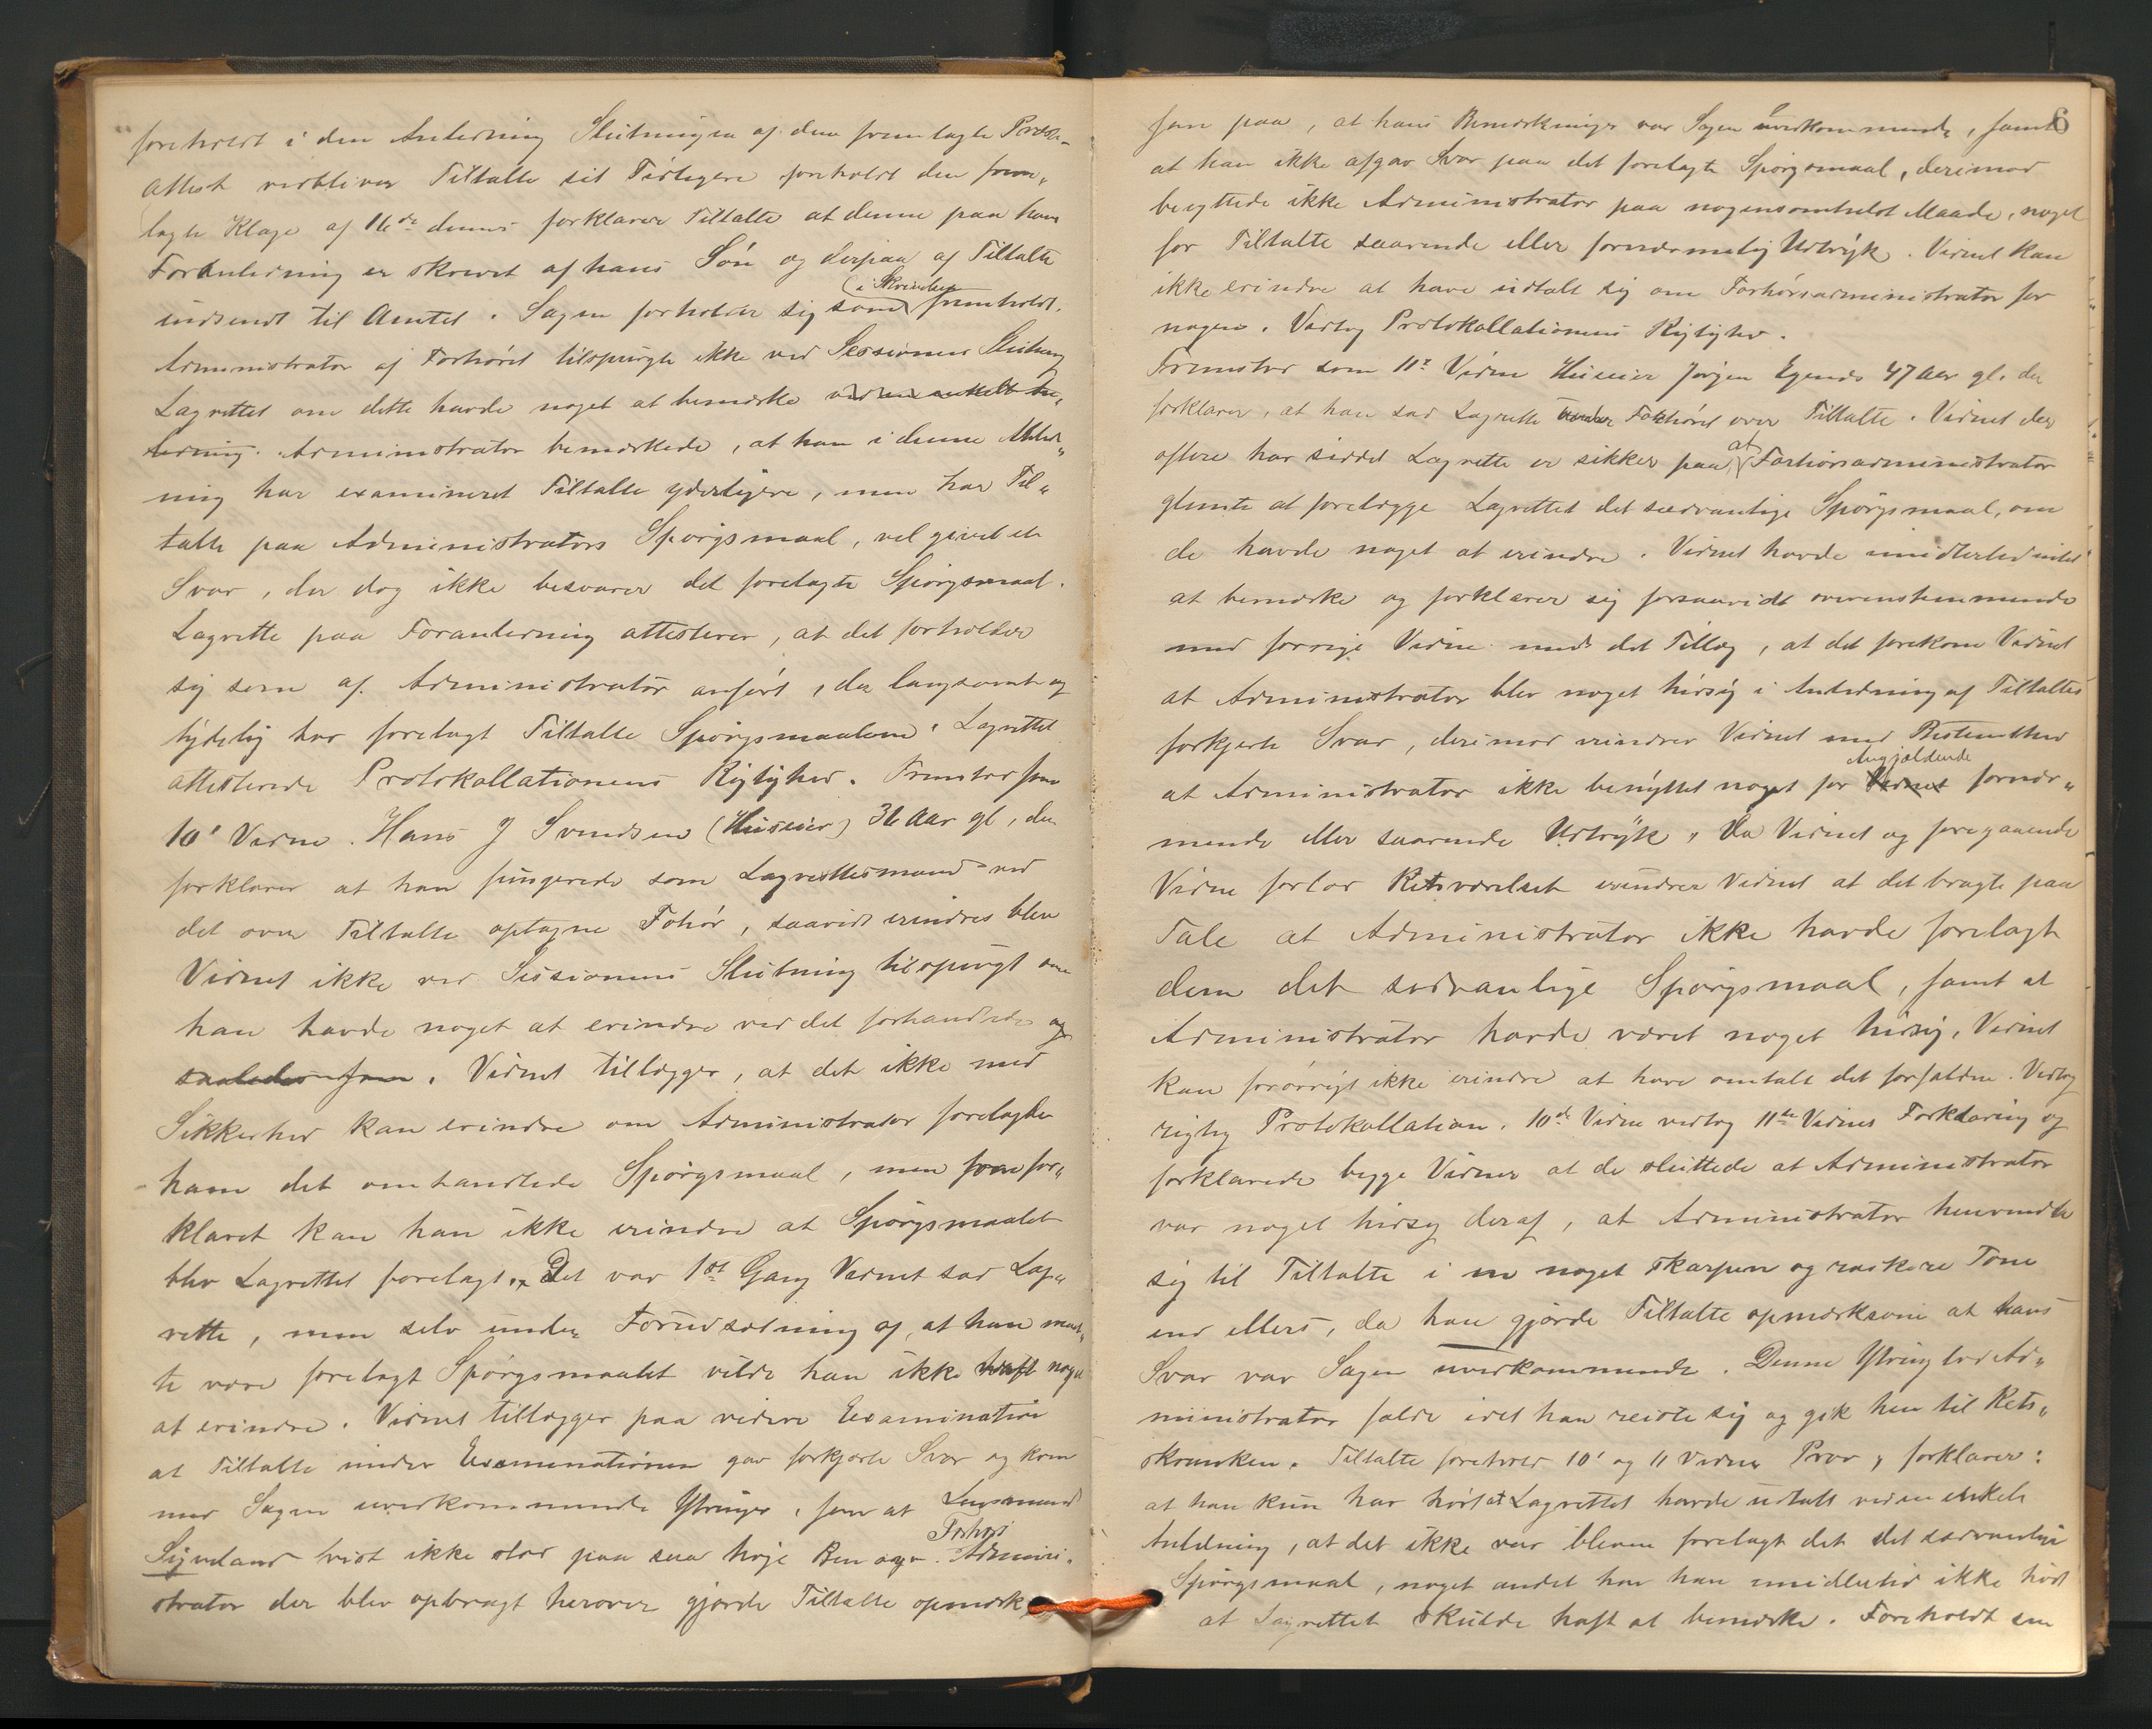 foreholdt i den Anledning Slutningen af den fremlagte
attest vedbliver Tiltalte sit Tidligere foreholdt den frem„
lagte Klage af 16de dennes forklarer Tiltalte at denne paa hans
Foranledning er skrevet af hans Søn og derpaa af Tiltalte
indsendt til Amtet. Sagen forholder sig som i Skrivelsen fremholdt.
Administrator af Forhøret tilspurgte ikke ved Sessionens Slutning
Lagrettet om dette havde noget at bemærke ved en enkelt An„
ledning. Administrator bemærkede, at han i denne Anled„
ning har examineret Tiltalte yderligere, men har Til„
talte paa Administrators Spørgsmaal, vel givet et
Svar, der dog ikke besvarer det forelagte Spørgsmaal.
Lagrette paa Foranledning attesterer, at det forholder
sig som af Administrator anført, der langsomt og
tydelig har forelagt Tiltalte Spørgsmaalene. Lagrettet
attesterede Protokollationens Rigtighed. Fremstod som
10' Vidne. Hans J Svendsen (Huseier) 36 Aar gl, der
forklarer at han fungerede som Lagrettesmand ved
det over Tiltalte optagne Fohør, saavidt erindres blev
Vidnet ikke ved Sessionens Slutning tilspurgt om
han havde noget at erindre ved det forhandlede og
saaledes som. Vidnet tillægger, at det ikke med
Sikkerhed kan erindre om Administrator forelagde
ham det omhandlede Spørgsmaal, men som for„
klaret kan han ikke erindre at Spørgsmaalet
blev Lagrettet forelagt. Det var 1st Gang Vidnet sad Lag„
rette, men selv under Forudsætning af, at han maat„
te være forelagt Spørgsmaalet vilde han ikke havt noget
at erindre. Vidnet tillægger paa videre Examination
at Tiltalte under Examinationen gav forkjerte Svar og kom
med Sagen uvedkommende Ytringer, som at Lensmand
Sigveland vist ikke stod paa saa høje Ben ogsv. Forhørs Admini„
strator der blev opbragt herover gjorde Tiltalte opmærk„
6
som paa, at hans Bemærkninger var Sagen uvedkommende, samt
at han ikke afgav Svar paa det forelagte Spørgsmaal, derimod
benyttede ikke Administrator paa nogensomhelst Maade, noget
for Tiltalte saarende eller fornærmelig Udtryk. Vidnet kan
ikke erindre at have udtalt sig om Forhørsadministrator for
nogen. Vedtog Protokollationens Rigtighed.
Fremstod som 11te Vidne Huseier Jørgen Egends 47 Aar gl. der
forklarer, at han sad Lagrette under Forhøret over Tiltalte. Vidnet der
oftere har siddet Lagrette er sikker paa at Forhørsadministrator
glemte at forelægge Lagrettet det sædvanlige Spørgsmaal, om
de havde noget at erindre. Vidnet havde imidlertid intet
at bemærke og forklarer sig forsaavidt overenstemmende
med forrige Vidne med det Tillæg, at det forekom Vidnet
at Administrator blev noget hidsig i Anledning af Tiltaltes
forkjerte Svar, derimod erindrer Vidnet med Bestemthed
at Administrator ikke benyttet noget for Vidnet Angjældende fornær„
mende eller saarende Udtryk, Da Vidnet og foregaaende
Vidne forlod Retsværelset erindrer Vidnet at det bragte paa
Tale at Administrator ikke havde forelagt
dem det sædvanlige Spørgsmaal, samt at
Administrator havde været noget hidsig, Vidnet
kan forøvrigt ikke erindre at have omtalt det forfaldne. Vedtog
rigtig Protokollation. 10de Vidne vedtog 11te Vidnes Forklaring og
forklarede begge Vidner at de sluttede at Administrator
var noget hidsig deraf, at Administrator henvendte
sig til Tiltalte i en noget skarpere og raskere Tone
end ellers, da han gjorde Tiltalte opmærksom at hans
Svar var Sagen uvedkommende. Denne Ytring lod Ad„
ministrator falde idet han reiste sig og gik hen til Rets„
skranken. Tiltalte foreholdt 10' og 11 Vidnes Prov, forklarer:
at han kun har hørt at Lagrettet havde udtalt ved en enkelt
Anledning, at det ikke var bleven forelagt det det sædvanlige
Spørgsmaal, noget andet har han imidlertid ikke hørt
at Lagrettet skulde haft at bemærke. Foreholdt sin